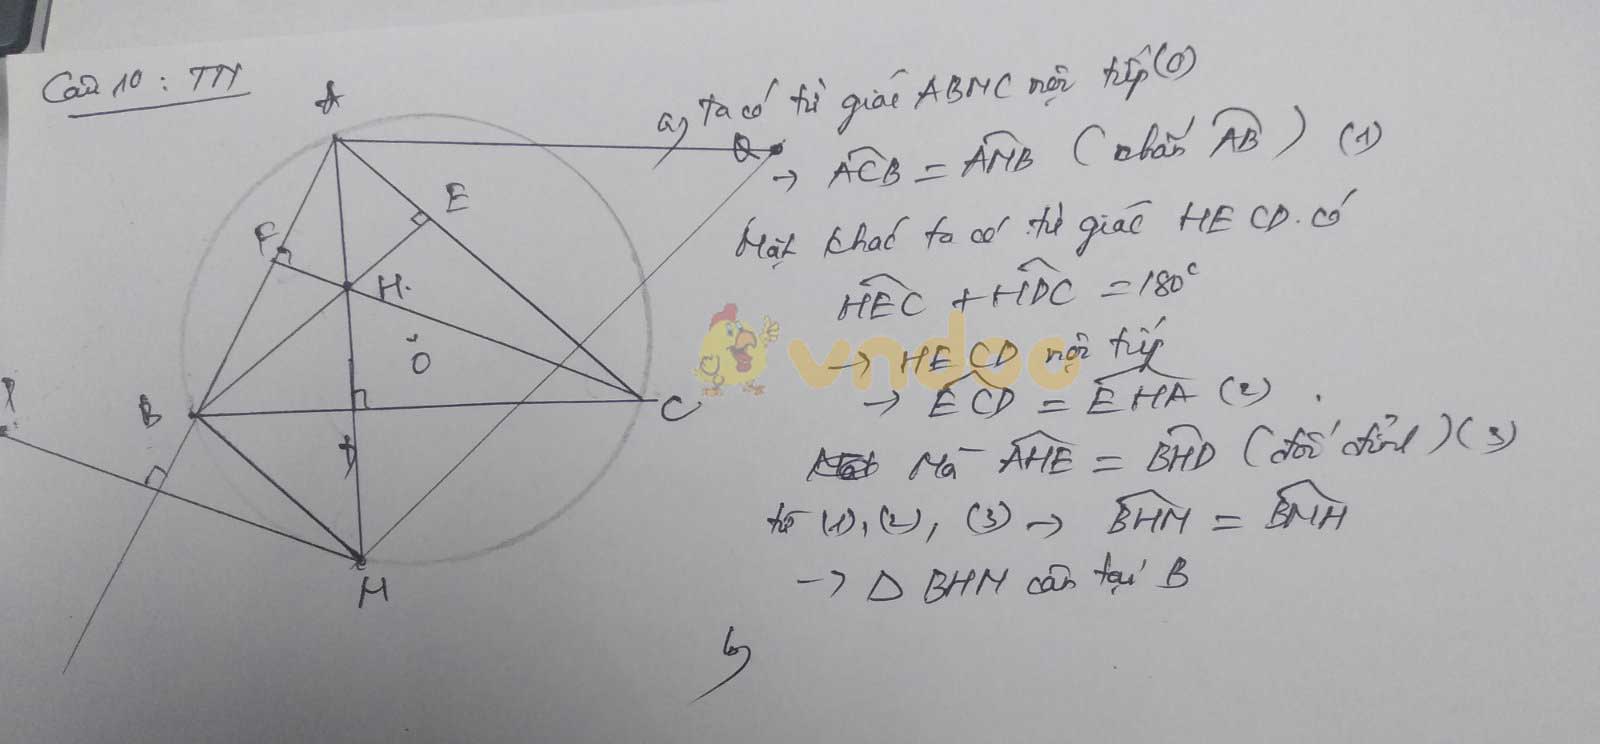 Câu 10: TTN
A
Q
E
F
H.
O
B
C
P
D
M
a, Ta có tứ giác ABMC nội tiếp (O)
→ ACB = AMB (chắn AB) (1)
Mặt khác ta có tứ giác HECD có
HEC + HDC = 180°
→ HECD nội tiếp
→ ECD = EHA (2).
Mà AHE = BHD (đối đỉnh) (3)
từ (1), (2), (3) → BHM = BMH
→ Δ BHM cân tại B
b,
vndoc